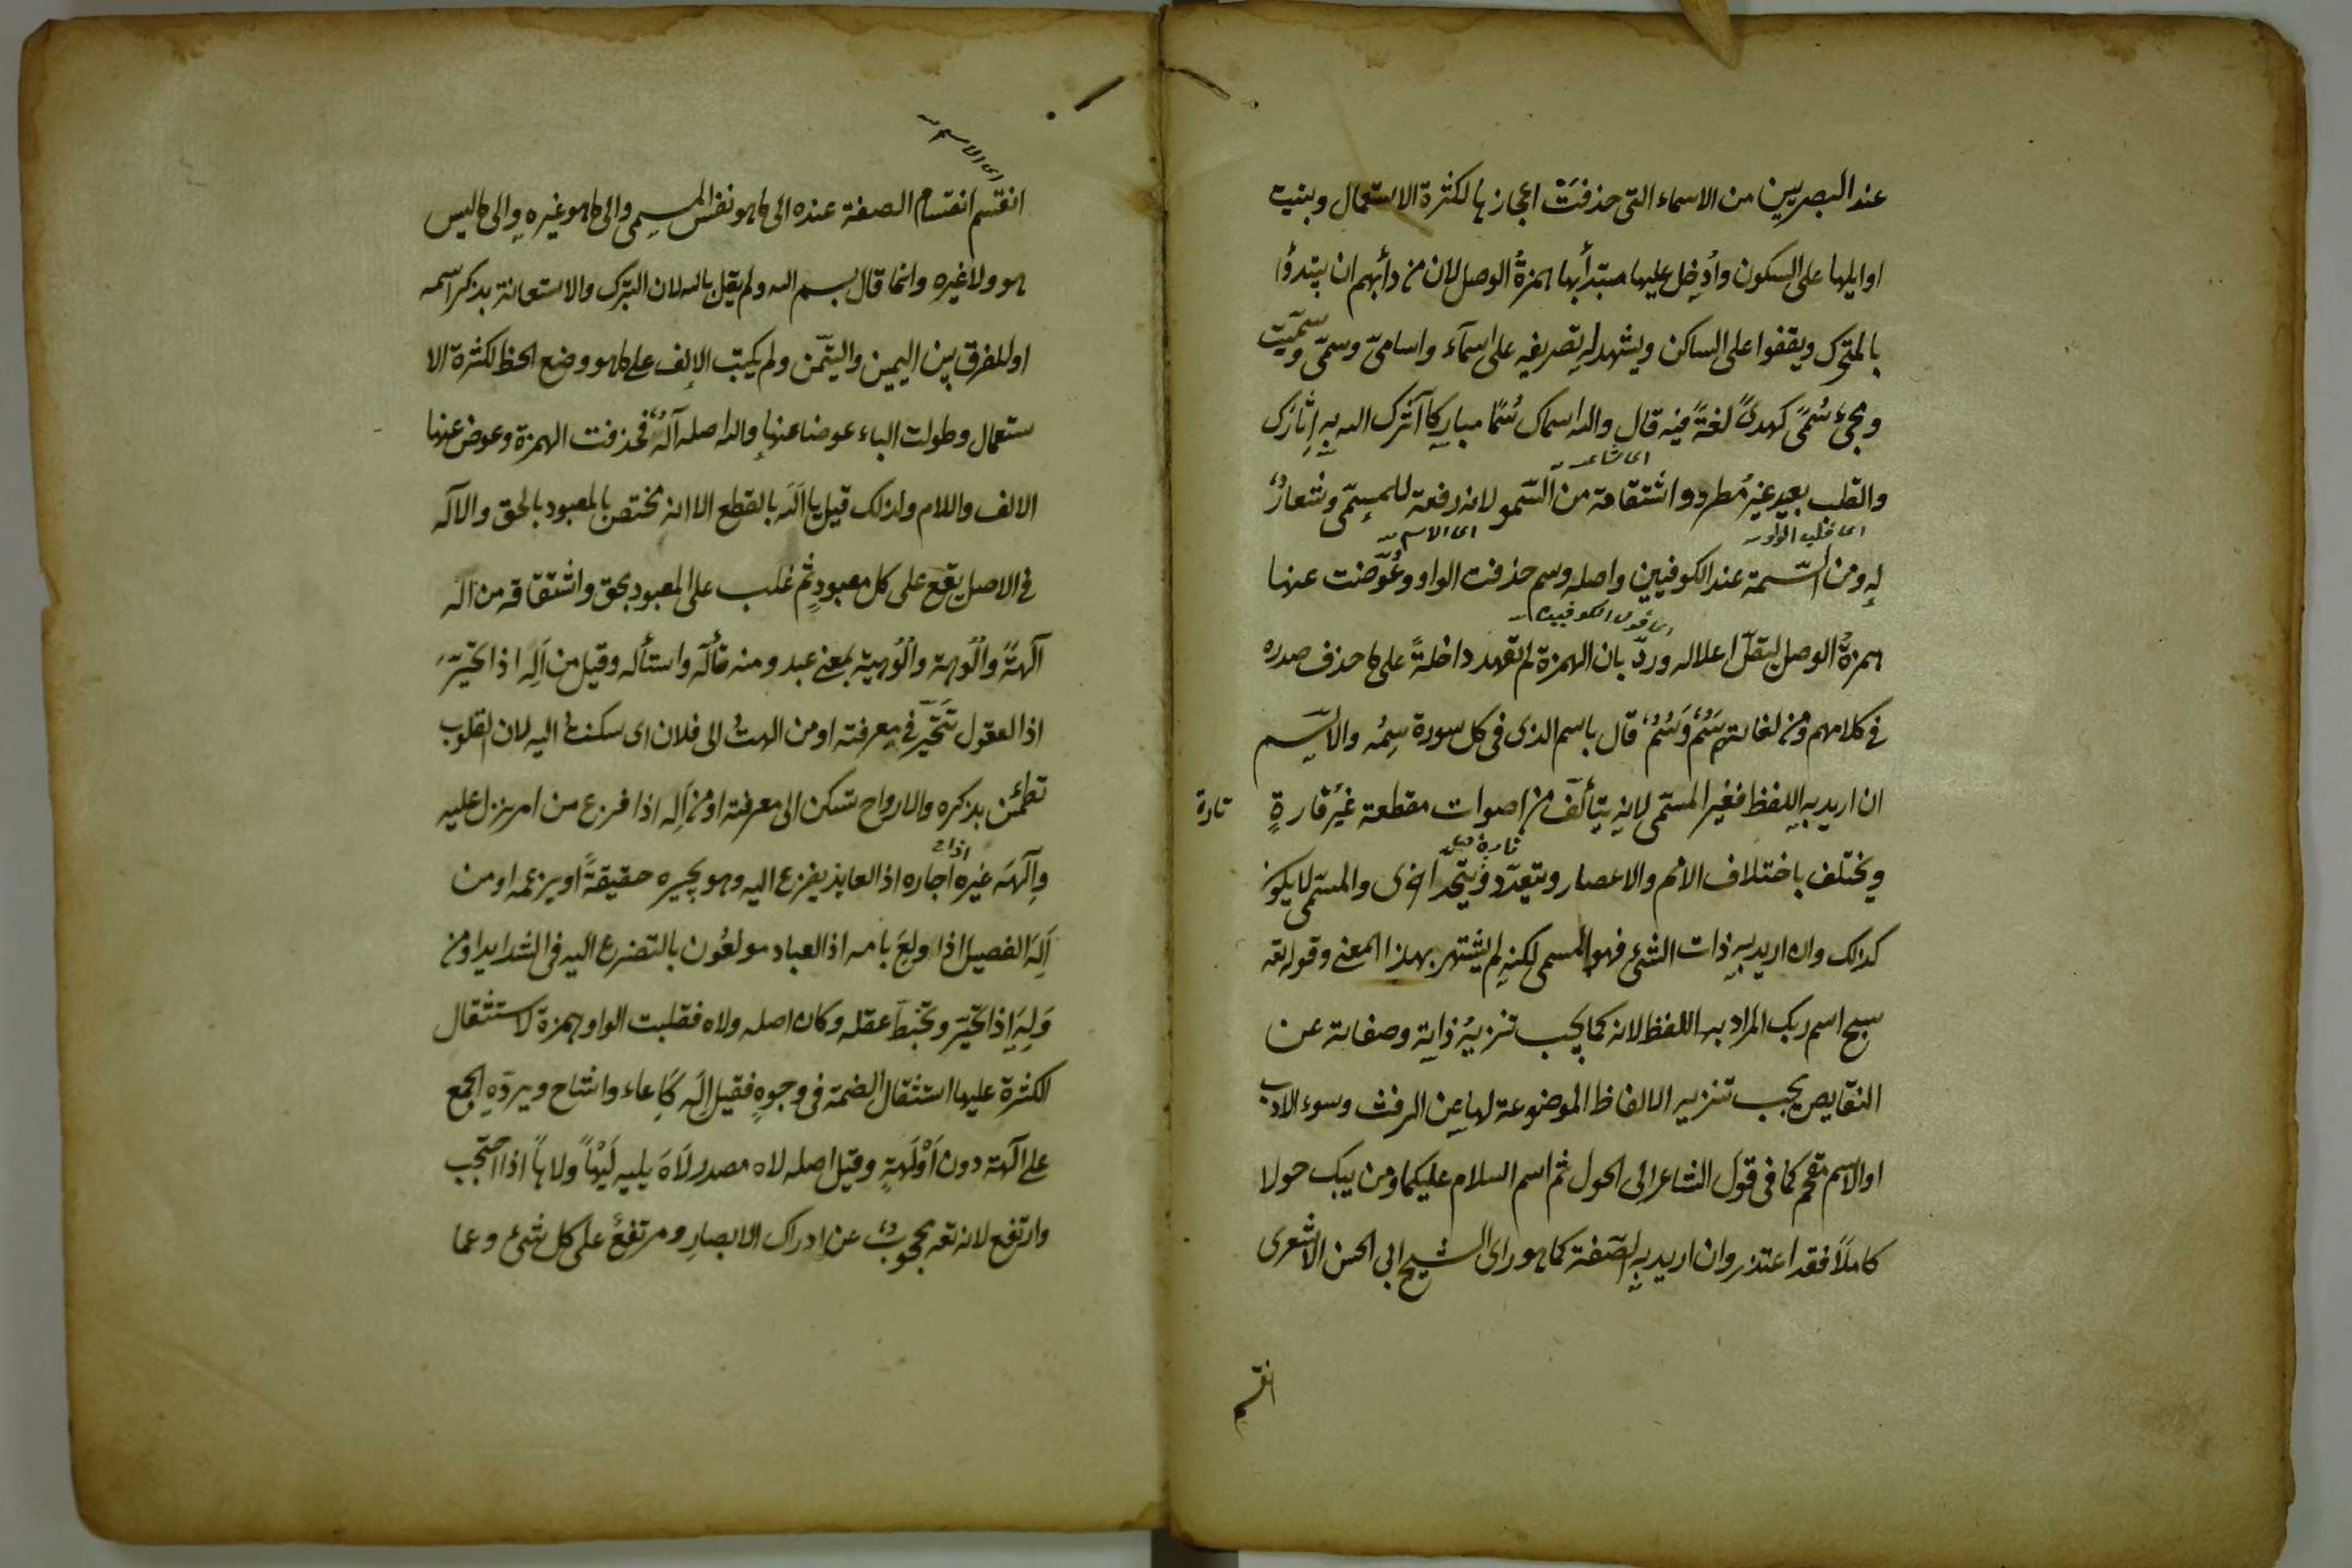 عند البصريين من الاسماء التى حذفت اعجازها لكثرة الاستعمال وبنيت
اوايلها على السكون وأُدخِل عليها مبتدأ بها همزةُ الوصل لان من دأبهم ان يبتدؤا
بالمتحرك ويقفوا على الساكن ويشهد له تصريفه على اسمآء واسامىّ وسمىّ وسمّيت
ومجئ سُمًى كهدىً لغةً فيه قال والله اسماك سُمًا مباركا آثرك الله به إِيثارك
اى شاعر
والقلب بعيد غيرُ مطرد واشتقاقة من السّمو لانه رفعة للمسمّى وشعارٌ
اى قلب الواو
اى الاسم
له ومن السّمة عند الكوفيين واصله وسم حذفت الواو وعُوّضت عنها
اى قول الكوفيين
همزةُ الوصل ليقلّ اعلاله وردّ بان الهمزة لم تعهد داخلةً على ما حذف صدره
فى كلامهم ومن لغاته سِمٌ وَسُمٌ قال باسم الذى فى كل سورة سِمُه والاسم
ان اريد به اللفظ فغير المسمّى لانه يتألّف من اصوات مقطعة غيرَ قارةٍ
تارة
ويختلف باختلاف الامم والاعصار ويتعدّد ويتّحد اخرى والمسمّى لا يكون
تارة
كذلك وان اريد به ذات الشئ فهو المسمى لكنه لم يشتهر بهذا المعنى وقوله تعه
سبح اسم ربك المراد به اللفظ لانه كما يجب تنزيهُ ذاته وصفاته عن
النقايص يجب تنزيه الالفاظ الموضوعة لها عن الرفث وسوء الادب
او الاسم مقحم كما فى قول الشاعر الى الحول ثم اسم السلام عليكما ومن يبك حولا
كاملاً فقد اعتذر وان اريد به الصّفة كما هو راى الشيخ ابى الحسن الاشعرى
انقسم
اى الاسم
انقسم انقسام الصفة عنده الى ما هو نفس المسمى والى ما هو غيره والى ما ليس
هو ولا غيره وانما قال بسم الله ولم يقل بالله لان التبرك والاستعانة بذكر اسمه
او للفرق بين اليمين والتيمّن ولم يكتب الالف على ما هو وضع الخط لكثرة الا
ستعمال وطولت الباء عوضا عنها والله اصله آلهٌ فحذفت الهمزة وعوض عنها
الالف واللام ولذلك قيل يا اَللّه بالقطع الا انه مختص بالمعبود بالحق والاله
فى الاصل يقع على كل معبودٍ ثم غلب على المعبود بحق واشتقاقه من اله
آلهةً واُلُوهة واُلُوهية بمعنى عبد ومنه تألّه واستأله وقيل من اَلِه اذا تحيّرَ
اذ العقول تَتَحَيّر فى معرفته او من الهتُ الى فلان اى سكنتُ اليه لان القلوب
تطمئن بذكره والارواح تسكن الى معرفته او من اَلِه اذا فزع من امر نزل عليه
وآلَهَه غيره اجاره اذ العايذ يفزع اليه وهو يجيره حقيقةً او بزعمه او من
اَلِهَ الفصيل اذا ولِعَ بامه اذ العباد مولَعُون بالتضرع اليه فى الشدايد او من
وَلِهَ اِذا تحيّر وتخبّط عقله وكان اصله ولاه فقلبت الواو همزة لاستثقال
الكثرة عليها استثقال الضمة فى وجوهٍ فقيل اله كَاِعاء واشاح ويردّه الجمع
على آلهة دون اَوْلَهَةٍ وقيل اصله لاه مصدر لَاهَ يليه لَيْهاً ولاهاً اذا احتجب
وارتفع لانه تعه محجوبٌ عن ادراك الابصارِ ومرتفعٌ على كل شئ وعما